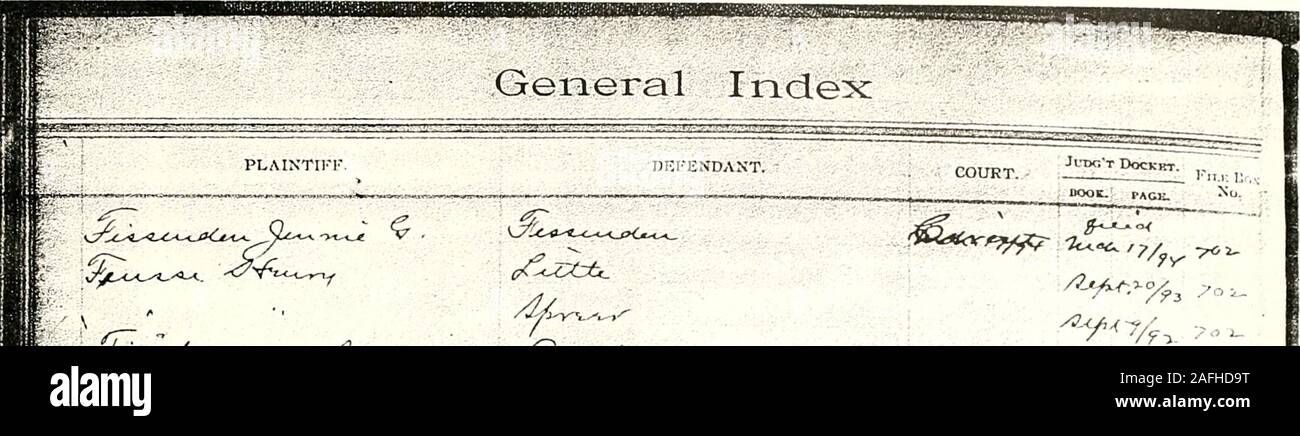 General Index
PLAINTIFF. DEFENDANT. COURT. JUDG'T DOCKET. FILE BOX No.
BOOK. PAGE.
Fissenden Jennie G. Fessenden filed Mch 17/94 702
Feusse Henry Little Sept. 20/93 702
" " Sept 9/92 702
alamy
Image ID: 2AFHD9T
www.alamy.com